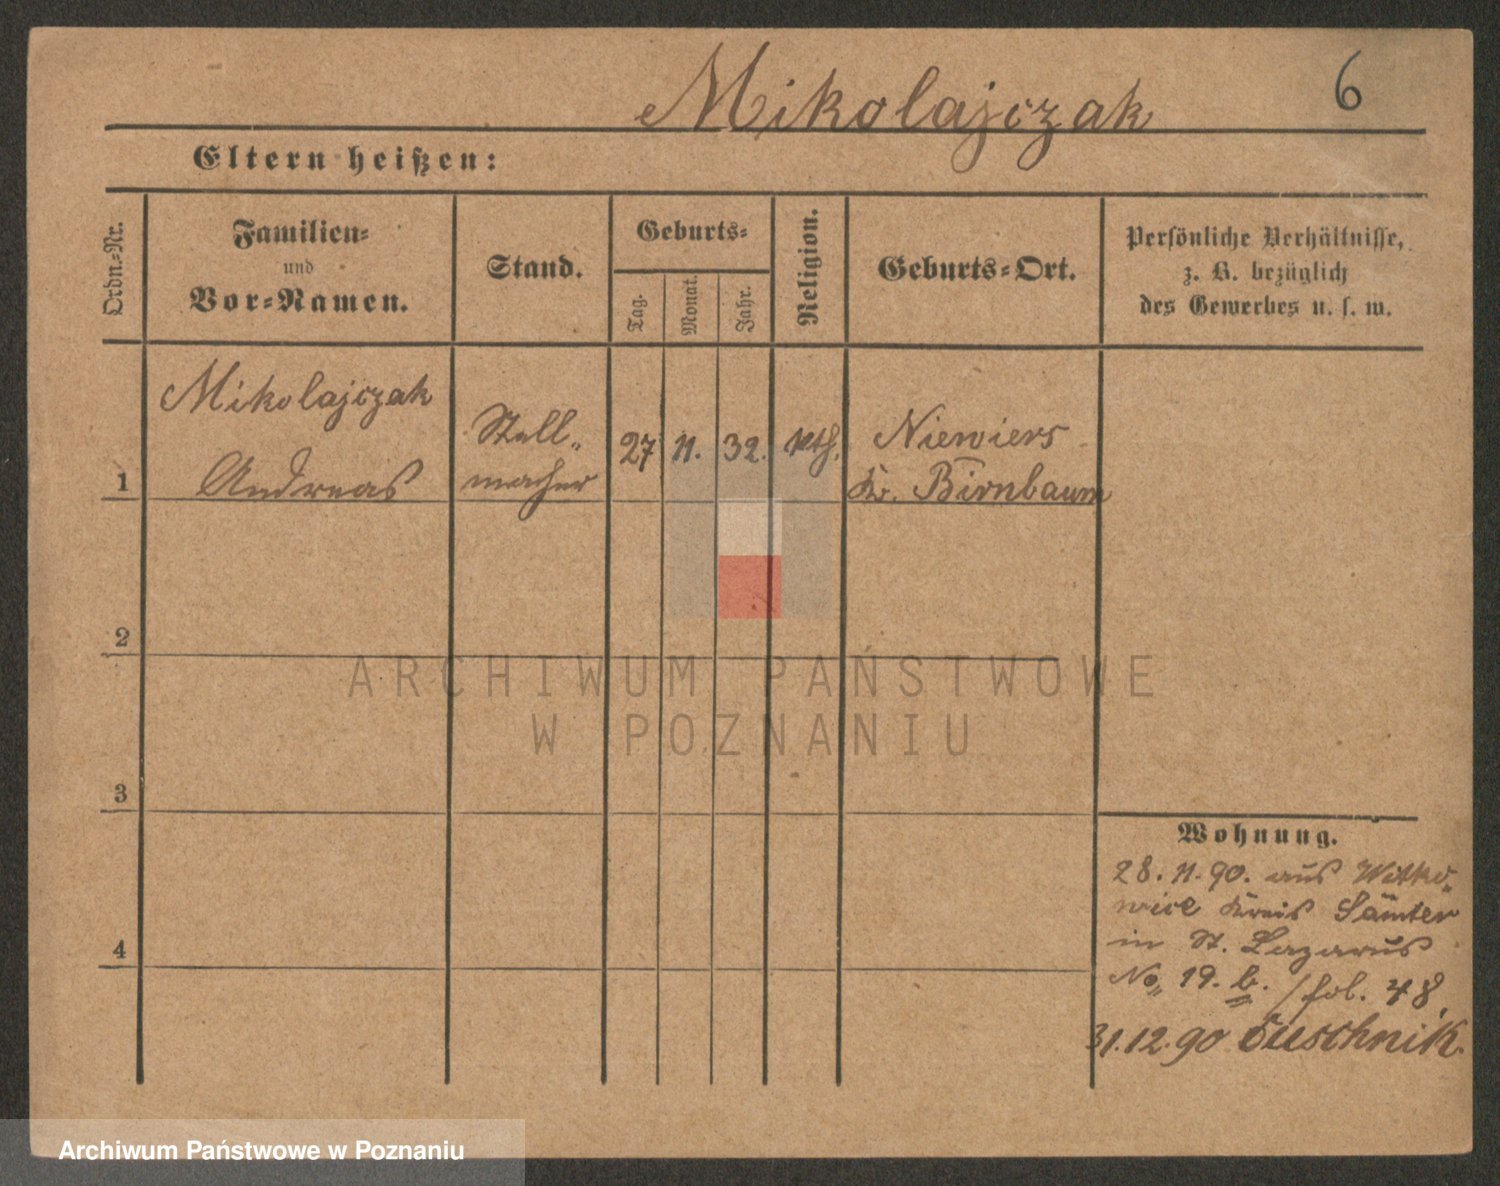 Mikolajczak
6
Eltern heißen:
Ordn.-Nr.
Familien-
und
Vor-Namen.
Stand.
Geburts-
Tag.
Monat.
Jahr.
Religion.
Geburts-Ort.
Persönliche Verhältnisse,
z. B. bezüglich
des Gewerbes u. s. w.
1
Mikolajczak
Andreas
Stell-
macher
27
11.
32.
kth.
Niewiers
Kr. Birnbaum
2
3
4
Wohnung.
28.11.90. aus Witko-
wice Kreis Samter
in St. Lazarus
No 19. b. / fol. 48.
31.12.90
ARCHIWUM PAŃSTWOWE
W POZNANIU
Archiwum Państwowe w Poznaniu